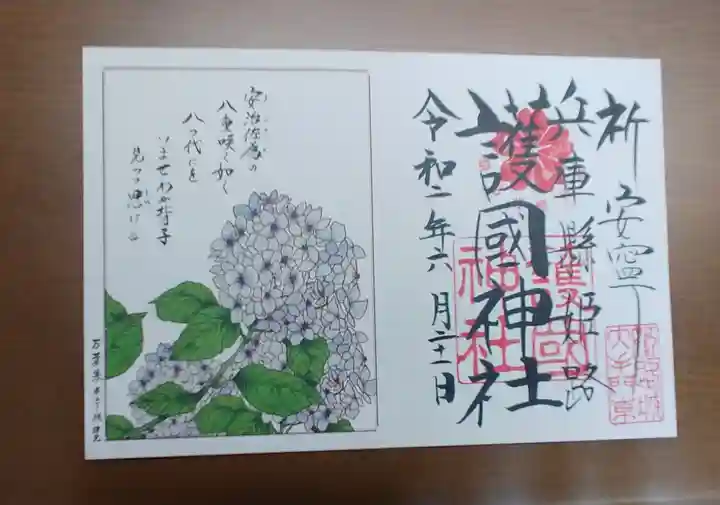 祈安寧
兵庫縣姫路
護國神社
令和二年六月二十一日
護國
神社
安治佐為の
八重咲く如く
八つ代にを
いませわが背子
見つつ思はむ